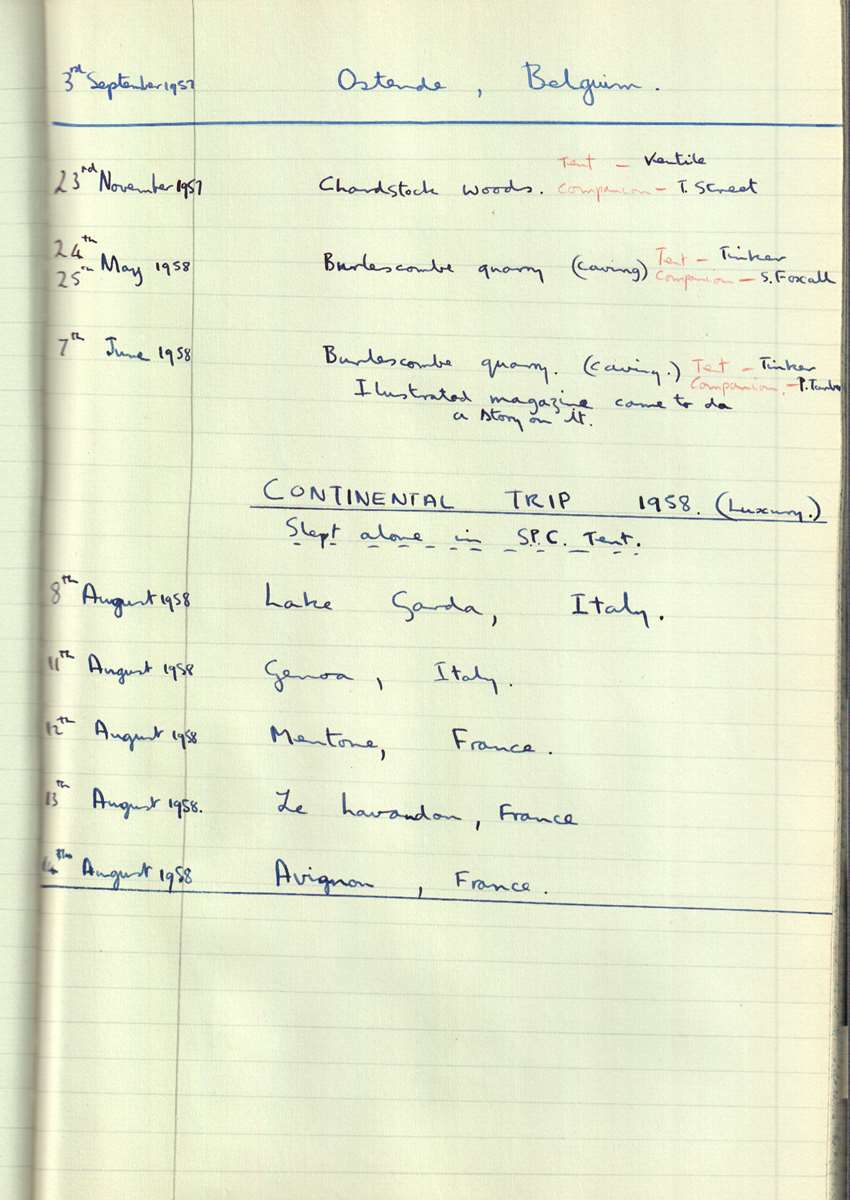 3rd September 1957 Ostende, Belguim.
Tent - Ventile
23rd November 1957 Chardstock woods. Companion - T. Street
24th
25th May 1958 Burlescombe quarry (caving) Tent - Tinker
Companion - S. Foxall
7th June 1958 Burlescombe quarry. (caving.) Tent - Tinker
Companion. - P.
Ilustrated magazine came to do
a story on it.
CONTINENTAL TRIP 1958. (Luxury.)
Slept alone in S.P.C. Tent.
8th August 1958 Lake Garda, Italy.
11th August 1958 Genoa, Italy.
12th August 1958 Mentone, France.
13th August 1958. Le Lavandon, France
14th August 1958 Avignon, France.